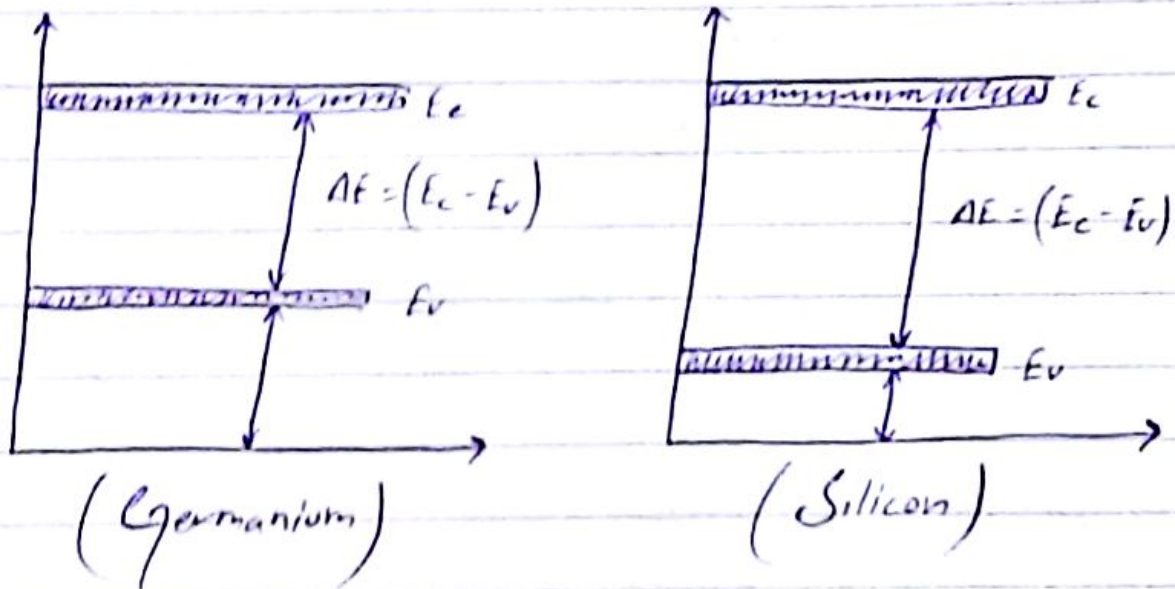 Ec
ΔE = (Ec - Ev)
Ev
(Germanium)
Ec
ΔE = (Ec - Ev)
Ev
(Silicon)